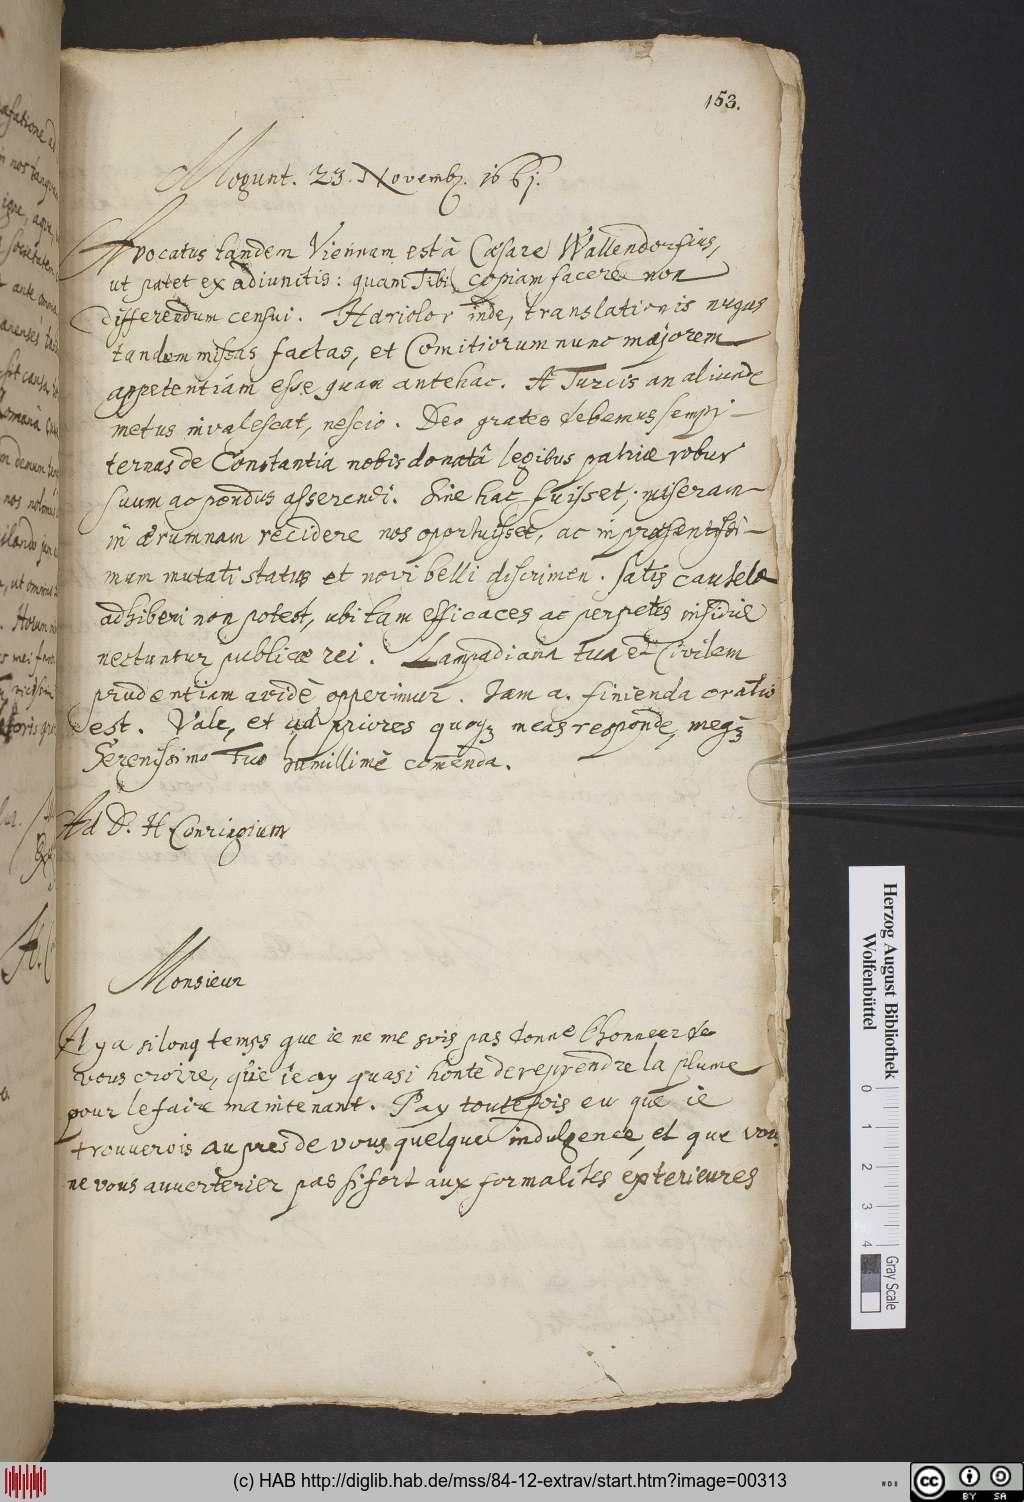 153.
Mogunt. 23. Novemb. 1661.
Avocatus tandem Viennam est â Cæsare Wallendorfius,
ut patet ex adiunctis: quam Tibi copiam facere non
differendum censui. Hariolor inde, translationis nugas
tandem missas factas, et Comitiorum nunc majorem
appetentiam esse quam antehac. A Turcis an aliunde
metus invalescat, nescio. Deo grates debemus sempi-
ternas de Constantia nobis donatâ legibus patriæ robur
suum ac pondus asserendi. Sine hac fuisset, miseram
in ærumnam recidere nos oportuisset, ac in præsentissi-
mum mutati status et novi belli discrimen. Satis cautelæ
adhiberi non potest, ubi tam efficaces ac perpetes insidiæ
nectuntur publicæ rei. Lampadiana tua et Civilem
prudentiam avidè opperimur. Jam a. finienda oratio
est. Vale, et ad priores quoqȝ meas responde, meqȝ
Serenissimo Tuo humillimè comenda.
Ad D. H Conringium
Monsieur
Il y a si long temps que ie ne me suis pas donne l'honneur de
vous croire, que i'e ay quasi honte de reprendre la plume
pour le faire maintenant. J'ay toutefois eu que ie
trouverois aupres de vous quelque indulgence, et que vou
ne vous auverterier pas si fort aux formalites exterieures
Herzog August Bibliothek
Wolfenbüttel
0 1 2 3 4
Gray Scale
(c) HAB http://diglib.hab.de/mss/84-12-extrav/start.htm?image=00313
cc BY SA